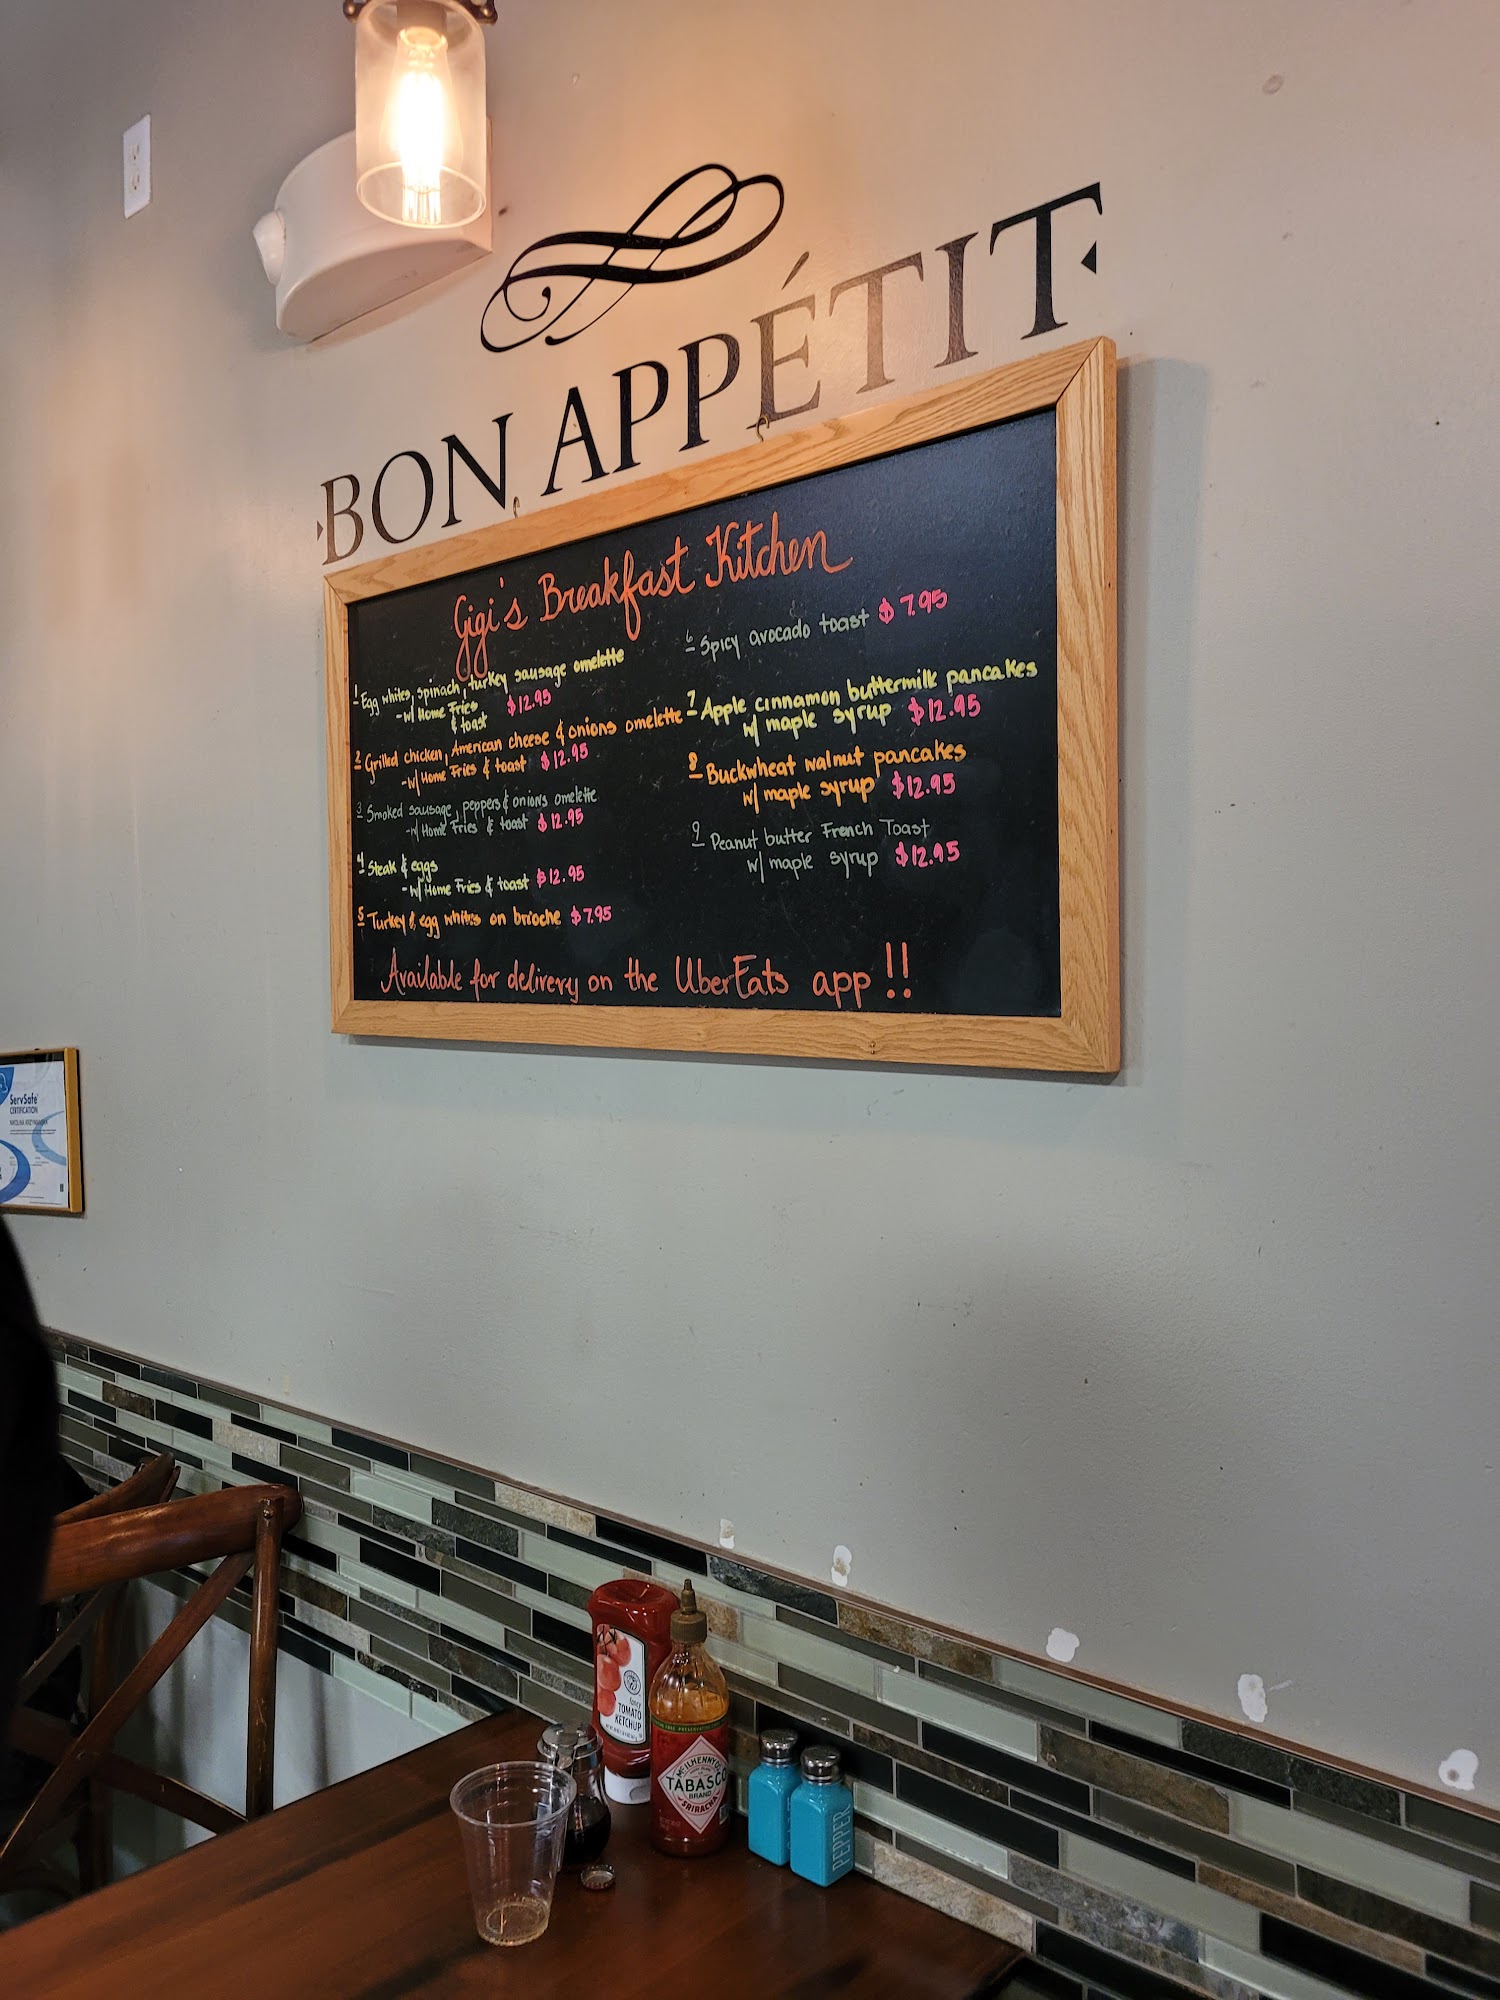 BON APPÉTIT
Gigi's Breakfast Kitchen
1 Egg whites, spinach, turkey sausage omelette
-w/ Home Fries
& toast $12.95
2 Grilled chicken, American cheese & onions omelette
-w/ Home Fries & toast $12.95
3 Smoked sausage, peppers & onions omelette
-w/ Home Fries & toast $12.95
4 Steak & eggs
-w/ Home Fries & toast $12.95
5 Turkey & egg whites on brioche $7.95
6 Spicy avocado toast $7.95
7 Apple cinnamon buttermilk pancakes
w/ maple syrup $12.95
8 Buckwheat walnut pancakes
w/ maple syrup $12.95
9 Peanut butter French Toast
w/ maple syrup $12.95
Available for delivery on the UberEats app!!
ServSafe
CERTIFICATION
fancy
TOMATO
KETCHUP
McILHENNY CO
TABASCO
BRAND
SRIRACHA
PEPPER